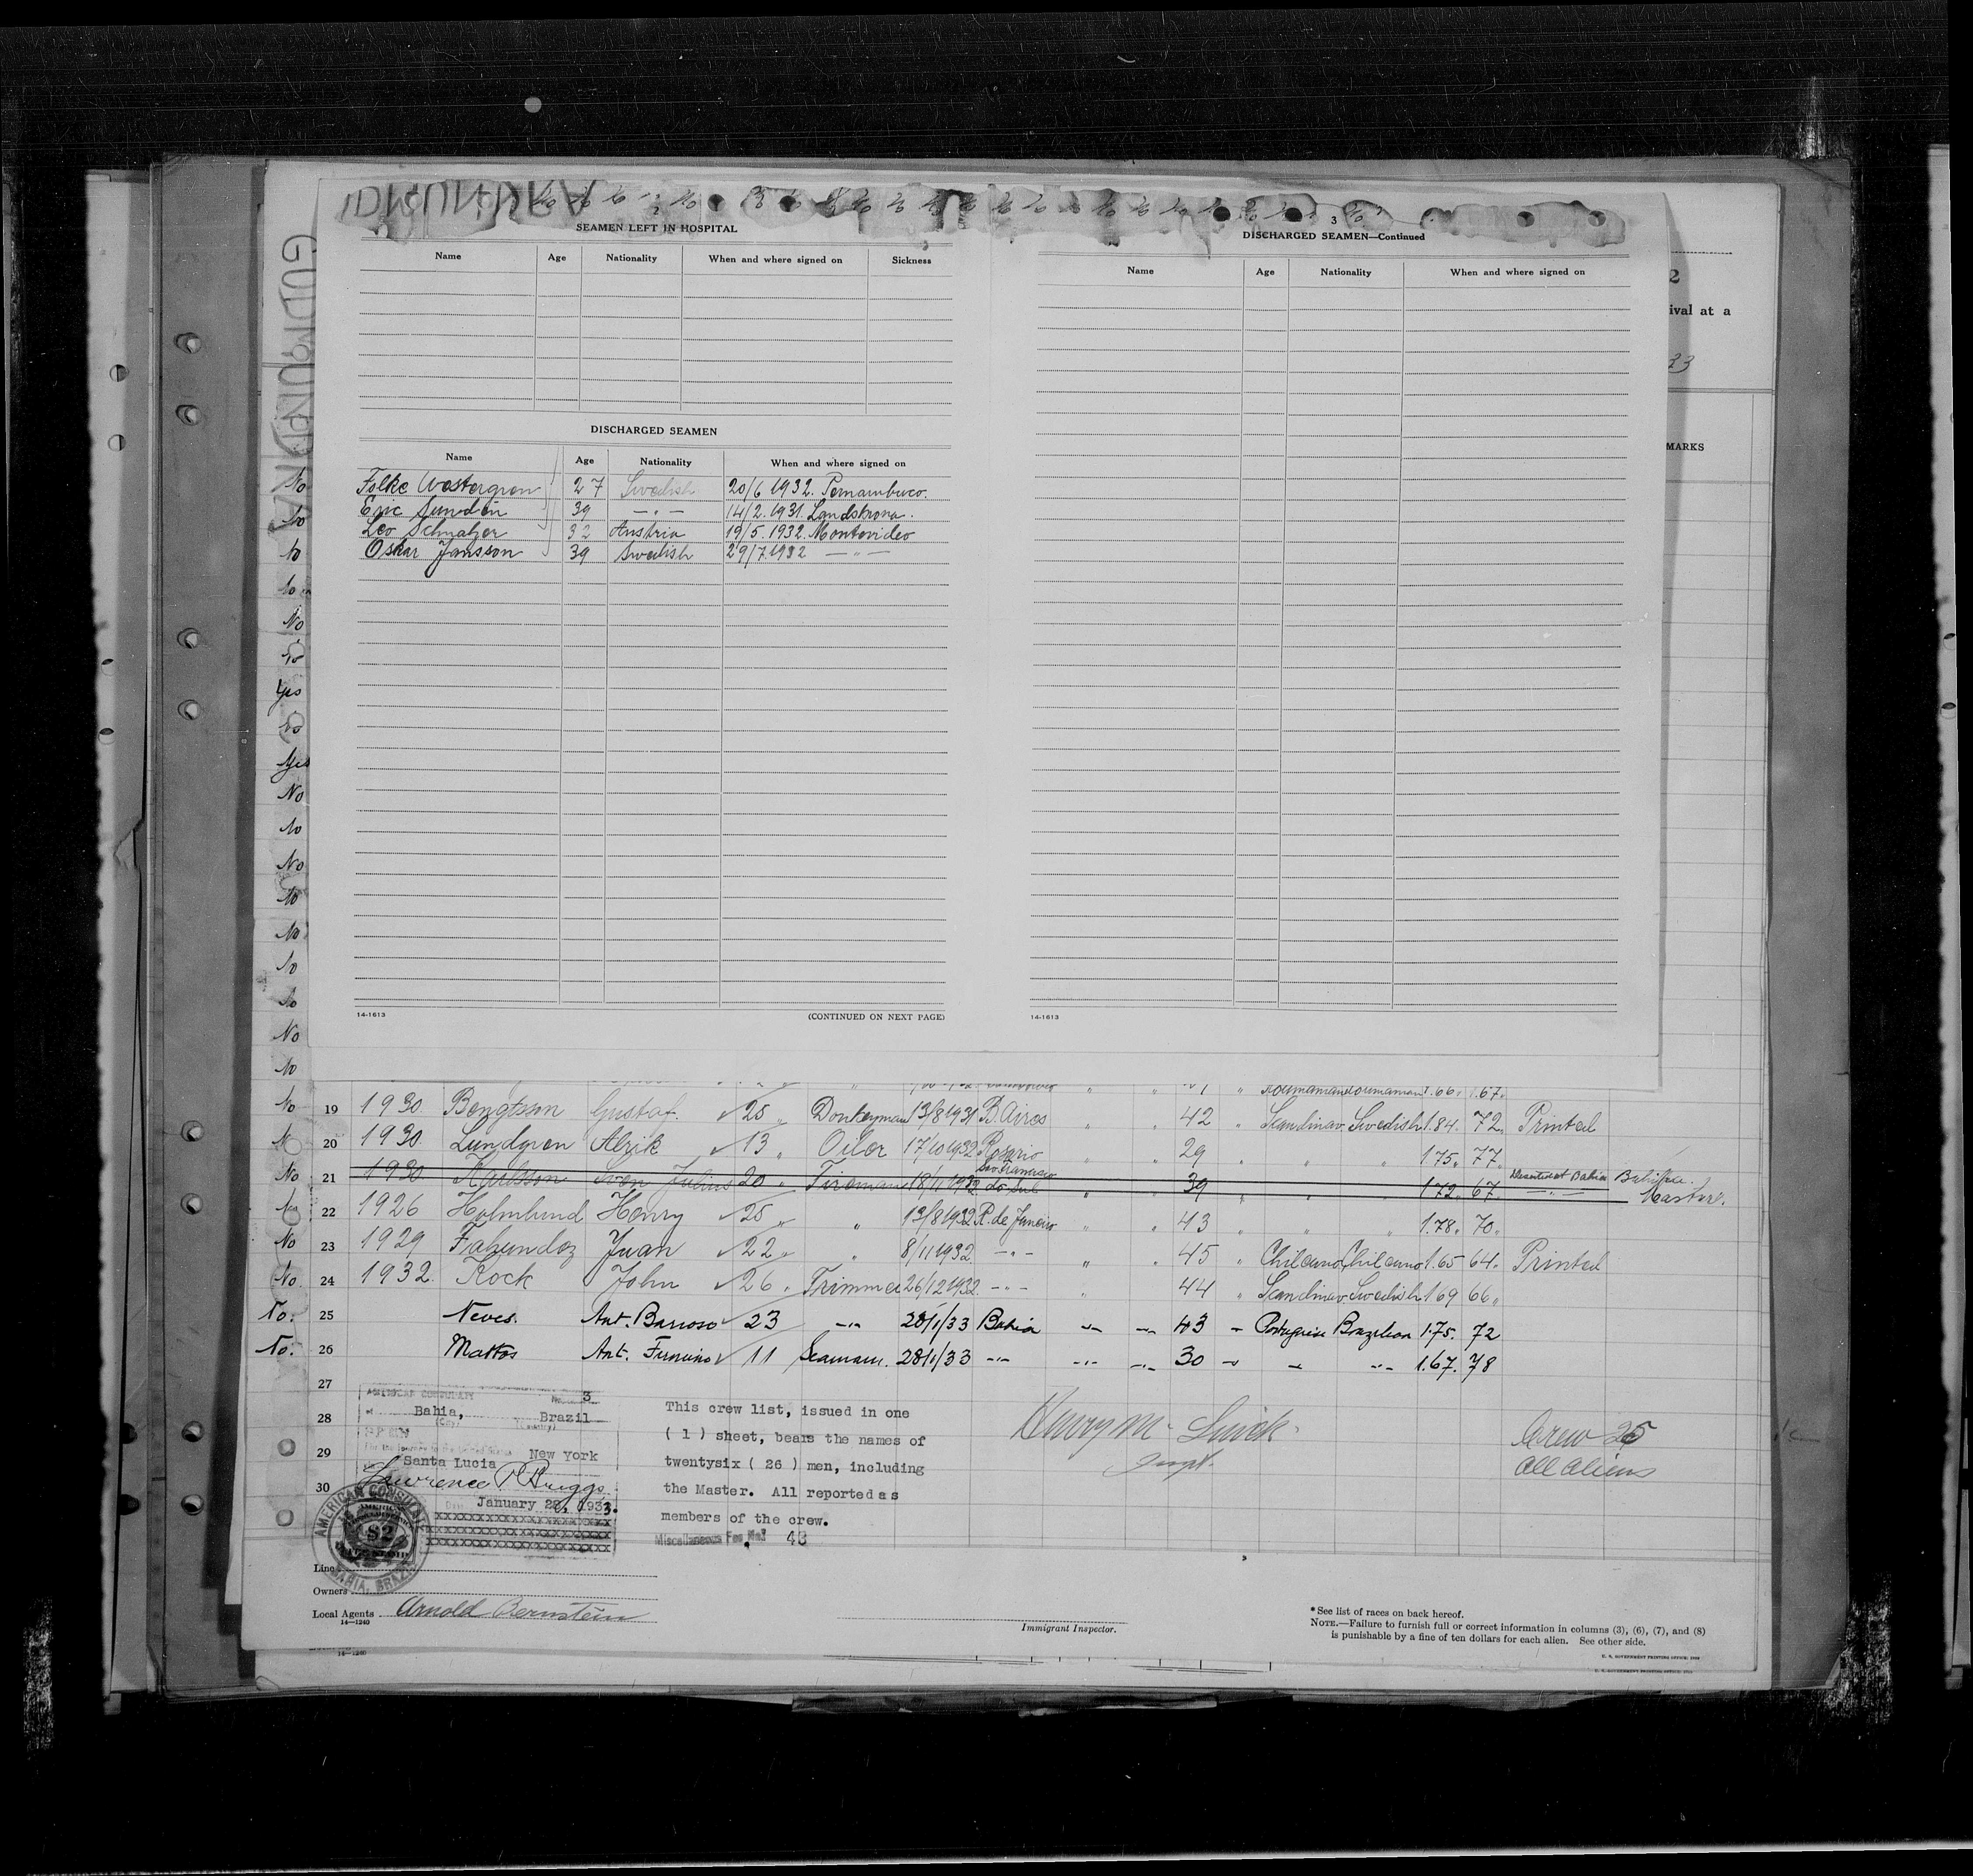 GUDMUNDRA
SEAMEN LEFT IN HOSPITAL
Name Age Nationality When and where signed on Sickness
DISCHARGED SEAMEN
Name Age Nationality When and where signed on
Folke Westergren 27 Swedish 20/6 1932. Pernambuco.
Eric Sundén 39 —"— 14/2.1931. Landskrona.
Leo Schnaher 32 Austria 19/5.1932. Montevideo
Oskar Jansson 39 Swedish 29/7.1932 —"—
14-1613 (CONTINUED ON NEXT PAGE)
3
DISCHARGED SEAMEN—Continued
Name Age Nationality When and where signed on
14-1613
2
ival at a
33
MARKS
No
No
No
No
No
No
Yes
No
Yes
No
No
No
No
No
No
No
No
No
No 19 1930. Bengtsson Gustaf. 25 " Donkeyman 13/8 1931 B. Aires " " 42 " Scandinav. Swedish 1.84. 72. Printed
No 20 1930. Lundgren Alrik 13 " Oiler 17/10 1932 Rosario " " 29 " " " 1.75. 77.
No 21 1930. Karlsson Sven Julius 20 " Fireman 18/11 1932 Sao Francisco do Sul " " 39 " " " 1.72. 67. Master.
No 22 1926 Holmlund Henry 25 " " 13/8 1932 R. de Janeiro " " 43 " " " 1.78. 70.
No 23 1929 Fagundez Juan 22 " " 8/11 1932 —"— " " 45 " Chileano Chileano 1.65 64. Printed
No. 24 1932. Kock John 26 " Trimmer 26/12 1932. —"— " " 44 " Scandinav. Swedish 1.69 66.
No. 25 Neves. Ant. Barroso 23 —"— 28/1/33 Bahia —"— —"— 43 — Portuguise Brazilian 1.75. 72
No. 26 Mattos Ant. Firmino 11 Seaman. 28/1/33 —"— —"— —"— 30 —"— —"— —"— 1.67. 78
27
28
29
30
AMERICAN CONSULATE No. 3
at Bahia, Brazil
(City) (Country)
New York
Santa Lucia
Lawrence P. Briggs
January 28, 1933.
XXXXXXXXXXXXXXXXXXXXX
AMERICAN CONSULATE
$2
BAHIA, BRAZIL
This crew list, issued in one
( 1 ) sheet, bears the names of
twentysix ( 26 ) men, including
the Master. All reported as
members of the crew.
Miscellaneous Fee No. 43
Henry M.
Inspt.
Crew 25
All aliens
Line
Owners
Local Agents Arnold Bernstein
14—1240
Immigrant Inspector.
* See list of races on back hereof.
NOTE.—Failure to furnish full or correct information in columns (3), (6), (7), and (8)
is punishable by a fine of ten dollars for each alien. See other side.
U. S. GOVERNMENT PRINTING OFFICE
14—1240